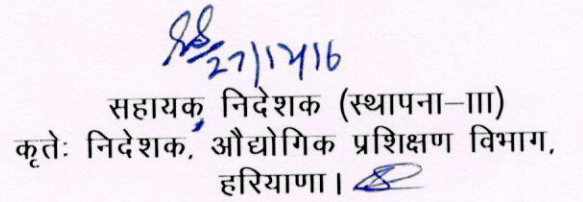 27/12/16
सहायक निदेशक (स्थापना–III)
कृतेः निदेशक, औद्योगिक प्रशिक्षण विभाग,
हरियाणा।